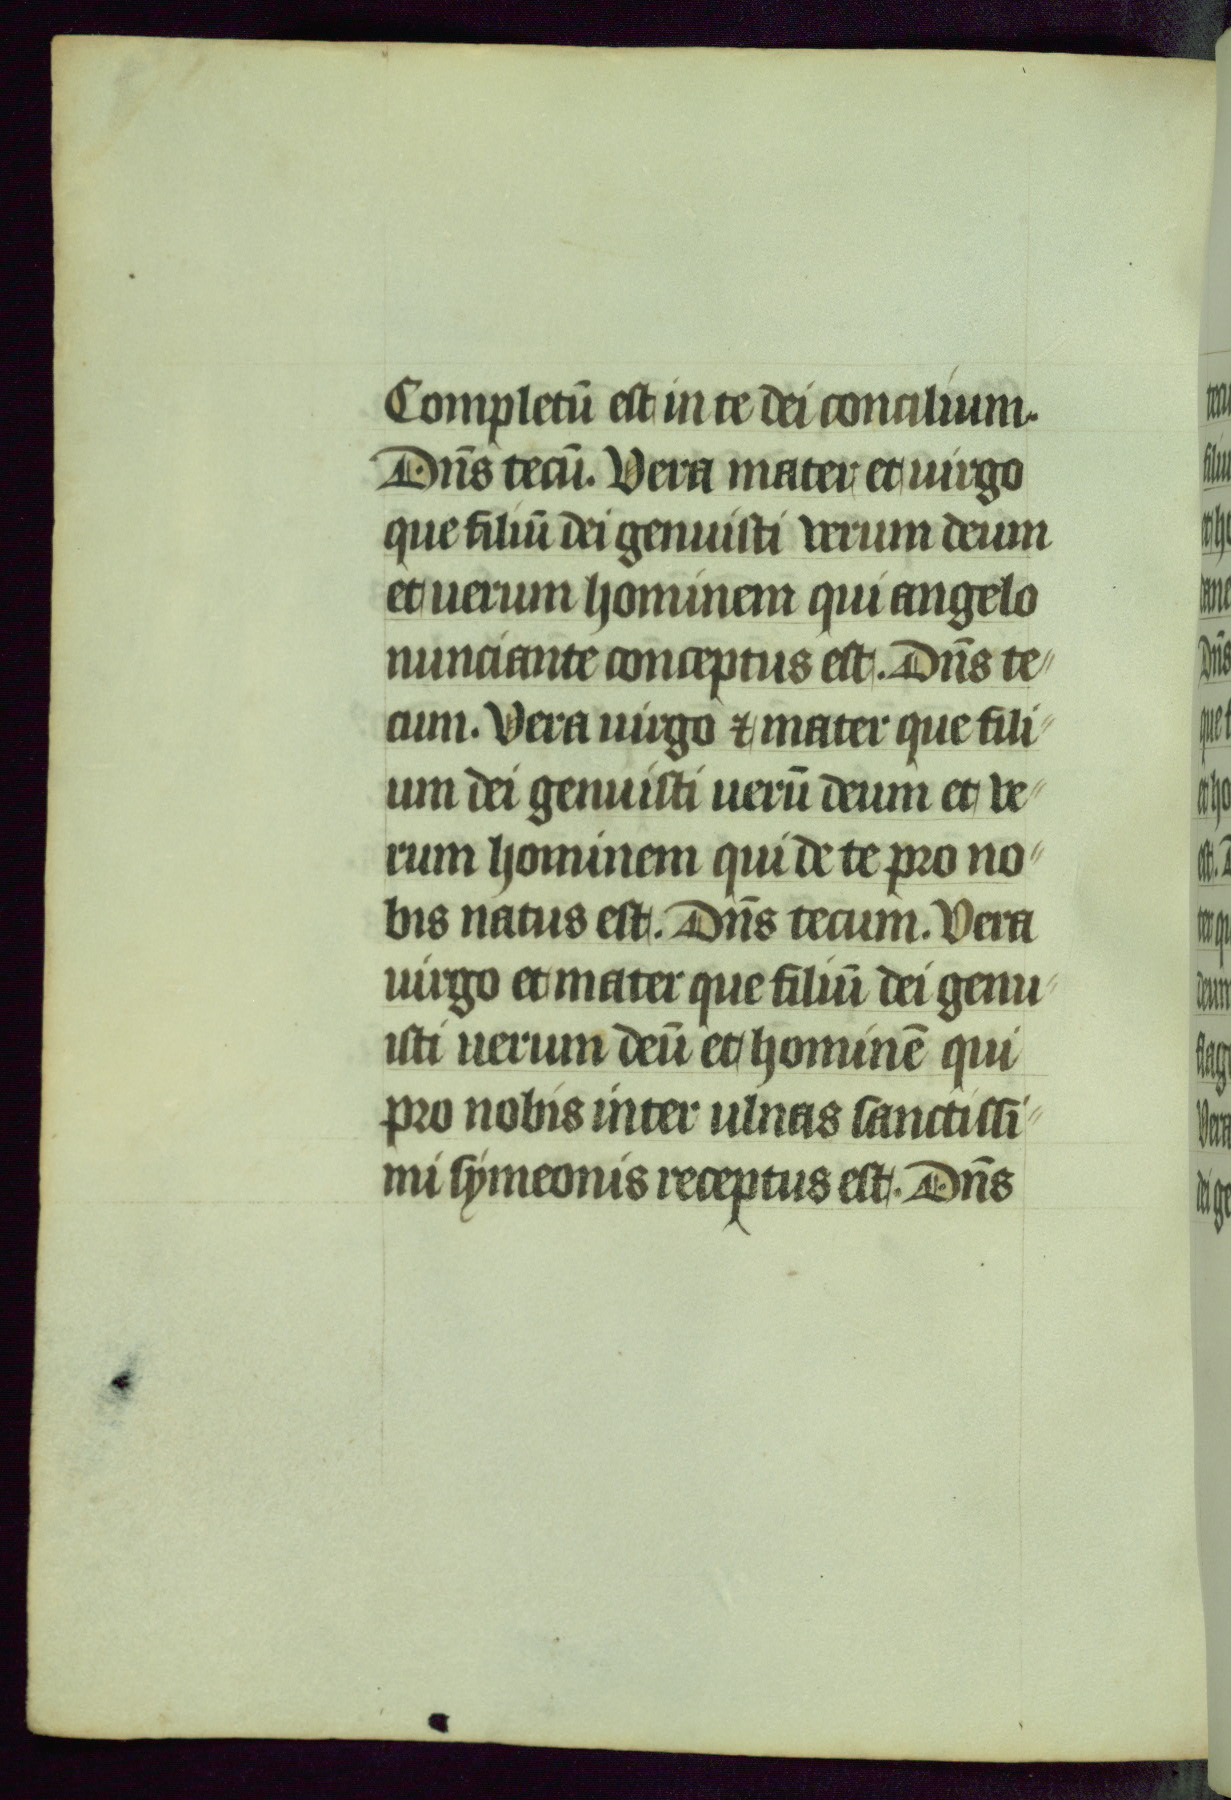 Completū est in te dei concilium.
Dn̄s tecū. Vera mater et uirgo
que filiū dei genuisti verum deum
et uerum hominem qui angelo
nunciante conceptus est. Dn̄s te〃
cum. Vera uirgo ⁊ mater que fili〃
um dei genuisti uerū deum et ve〃
rum hominem qui de te pro no〃
bis natus est. Dn̄s tecum. Vera
uirgo et mater que filiū dei genu〃
isti uerum deū et hominē qui
pro nobis inter ulnas sanctissi〃
mi symeonis receptus est. Dn̄s